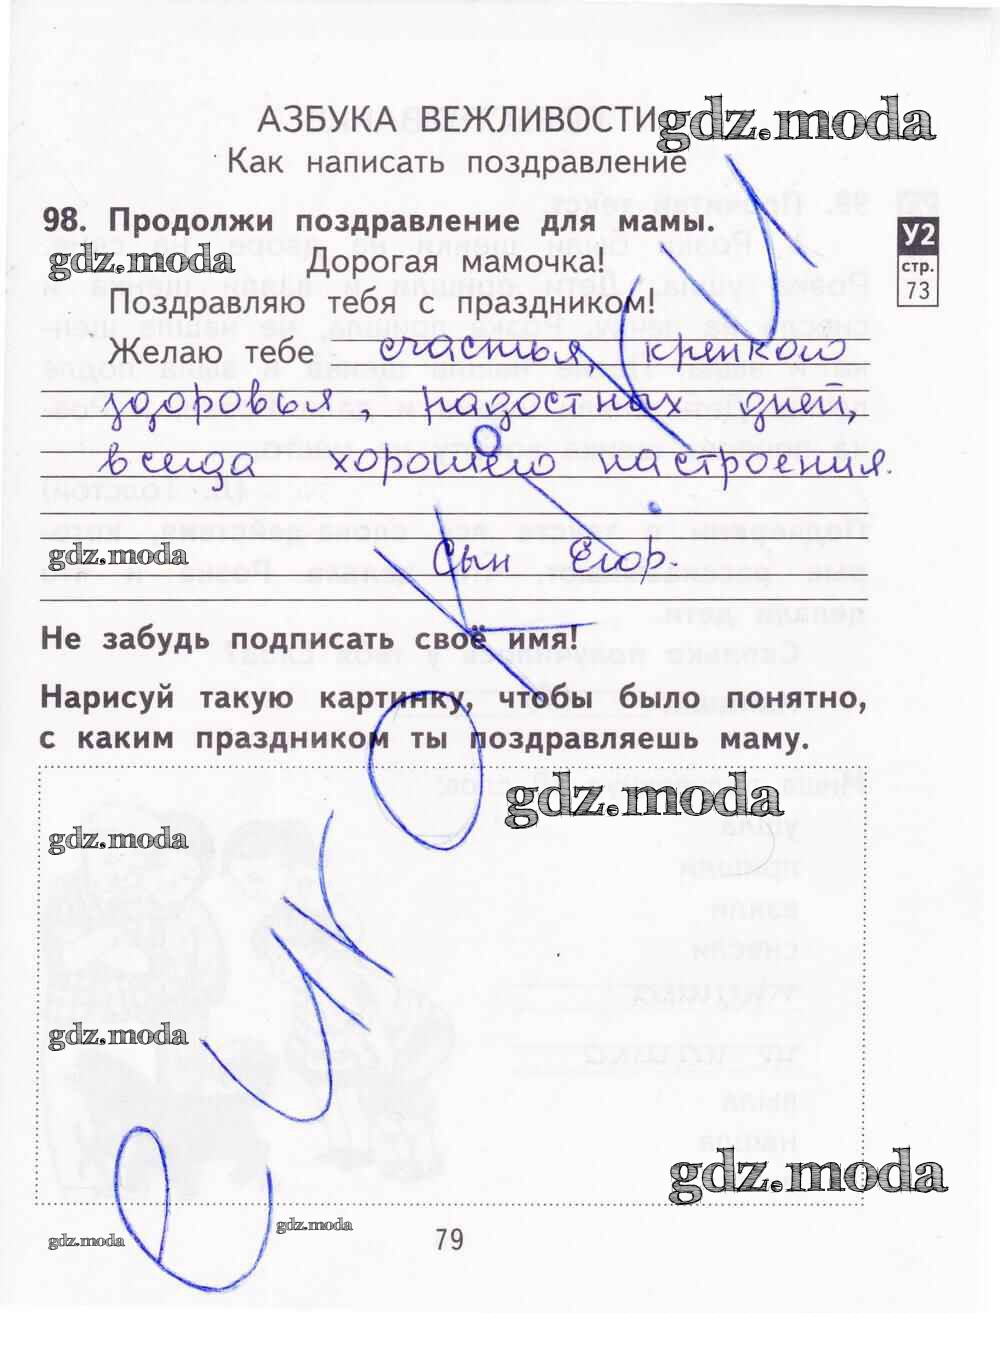 АЗБУКА ВЕЖЛИВОСТИ
gdz.moda
Как написать поздравление
98. Продолжи поздравление для мамы.
У2
стр.
73
gdz.moda
Дорогая мамочка!
Поздравляю тебя с праздником!
Желаю тебе счастья, крепкого
здоровья, радостных дней,
всегда хорошего настроения.
gdz.moda
Сын Егор.
Не забудь подписать своё имя!
Нарисуй такую картинку, чтобы было понятно,
с каким праздником ты поздравляешь маму.
gdz.moda
gdz.moda
gdz.moda
gdz.moda
gdz.moda
gdz.moda
79